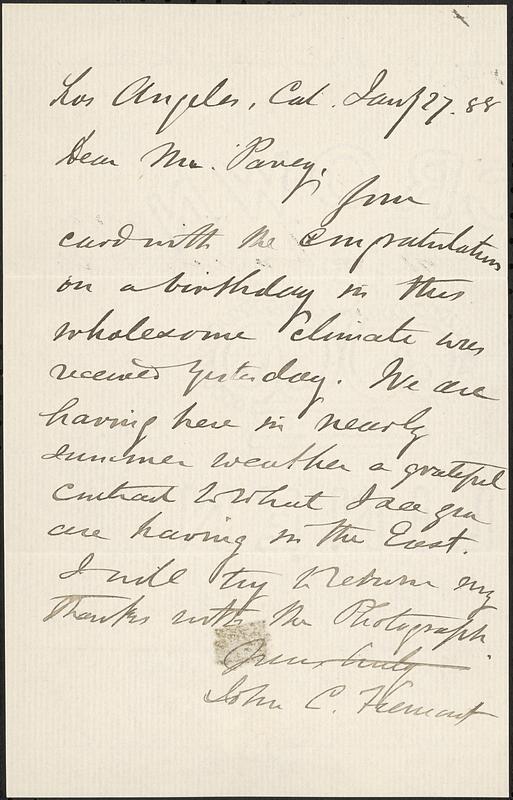 Los Angeles, Cal. Jany 27. 88
Dear Mr. Pavey,
Your
card with the congratulations
on a birthday in this
wholesome climate was
received yesterday. We are
having here in nearly
summer weather a grateful
contrast to what I see you
are having in the East.
I will try to return my
thanks with the Photograph.
Yours truly
John C. Fremont